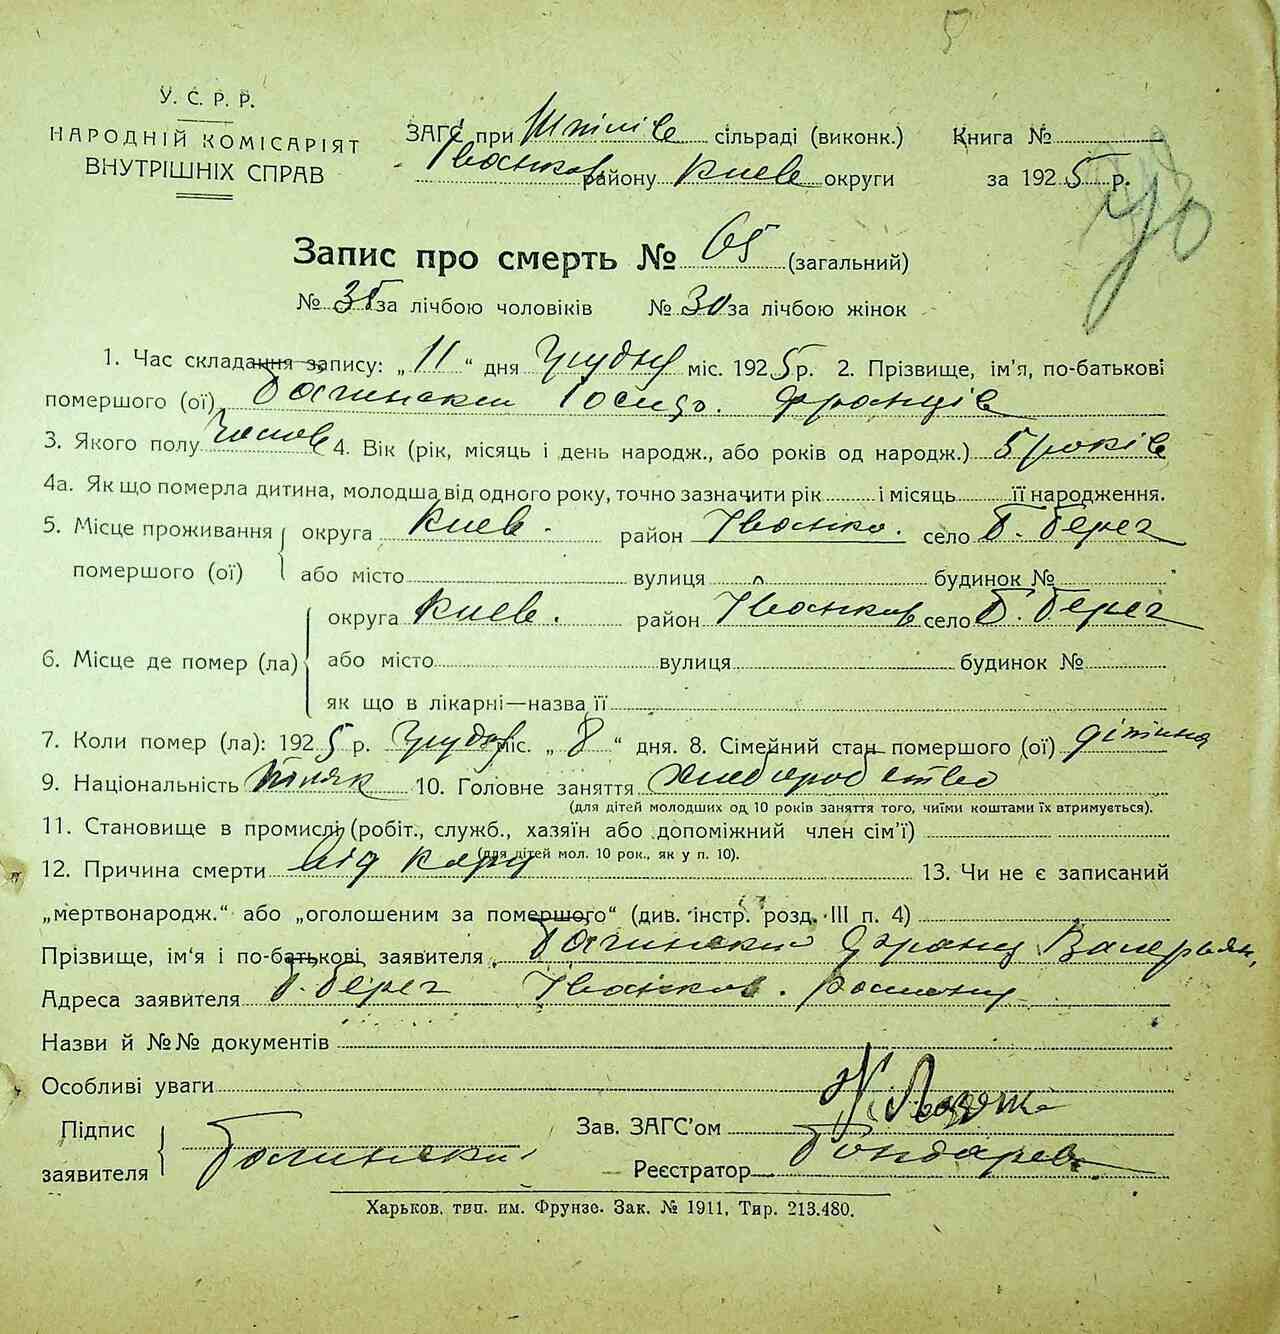 5
У. С. Р. Р.
НАРОДНІЙ КОМІСАРІЯТ
ВНУТРІШНІХ СПРАВ
ЗАГС при Шпілів сільраді (виконк.)
Іванков району Киев округи
Книга №
за 1925 р.
Запис про смерть № 65 (загальний)
№ 35 за лічбою чоловіків № 30 за лічбою жінок
1. Час складання запису: „11“ дня Грудну міс. 1925 р. 2. Прізвище, ім'я, по-батькові
помершого (ої) Багинский Франців
3. Якого полу 4. Вік (рік, місяць і день народж., або років од народж.) 5 років
4а. Як що померла дитина, молодша від одного року, точно зазначити рік і місяць її народження.
5. Місце проживання помершого (ої) округа Киев. район Іванко. село Б. Берег
або місто вулиця будинок №
6. Місце де помер (ла) округа Киев. район Іванков село Б. Берег
або місто вулиця будинок №
як що в лікарні—назва її
7. Коли помер (ла): 1925 р. міс. „8“ дня. 8. Сімейний стан помершого (ої) дітина
9. Національність Поляк 10. Головне заняття хлеборобство
(для дітей молодших од 10 років заняття того, чиїми коштами їх втримується).
11. Становище в промислі (робіт., служб., хазяїн або допоміжний член сім'ї)
(для дітей мол. 10 рок., як у п. 10).
12. Причина смерти від кору 13. Чи не є записаний
„мертвонародж.“ або „оголошеним за помершого“ (див. інстр. розд. III п. 4)
Прізвище, ім'я і по-батькові заявителя Багинский Франц Валерьян.
Адреса заявителя Б. Берег Іванков.
Назви й №№ документів
Особливі уваги
Підпис заявителя
Зав. ЗАГС'ом
Реєстратор Бондарев
Харьков, тип. им. Фрунзе. Зак. № 1911. Тир. 213.480.